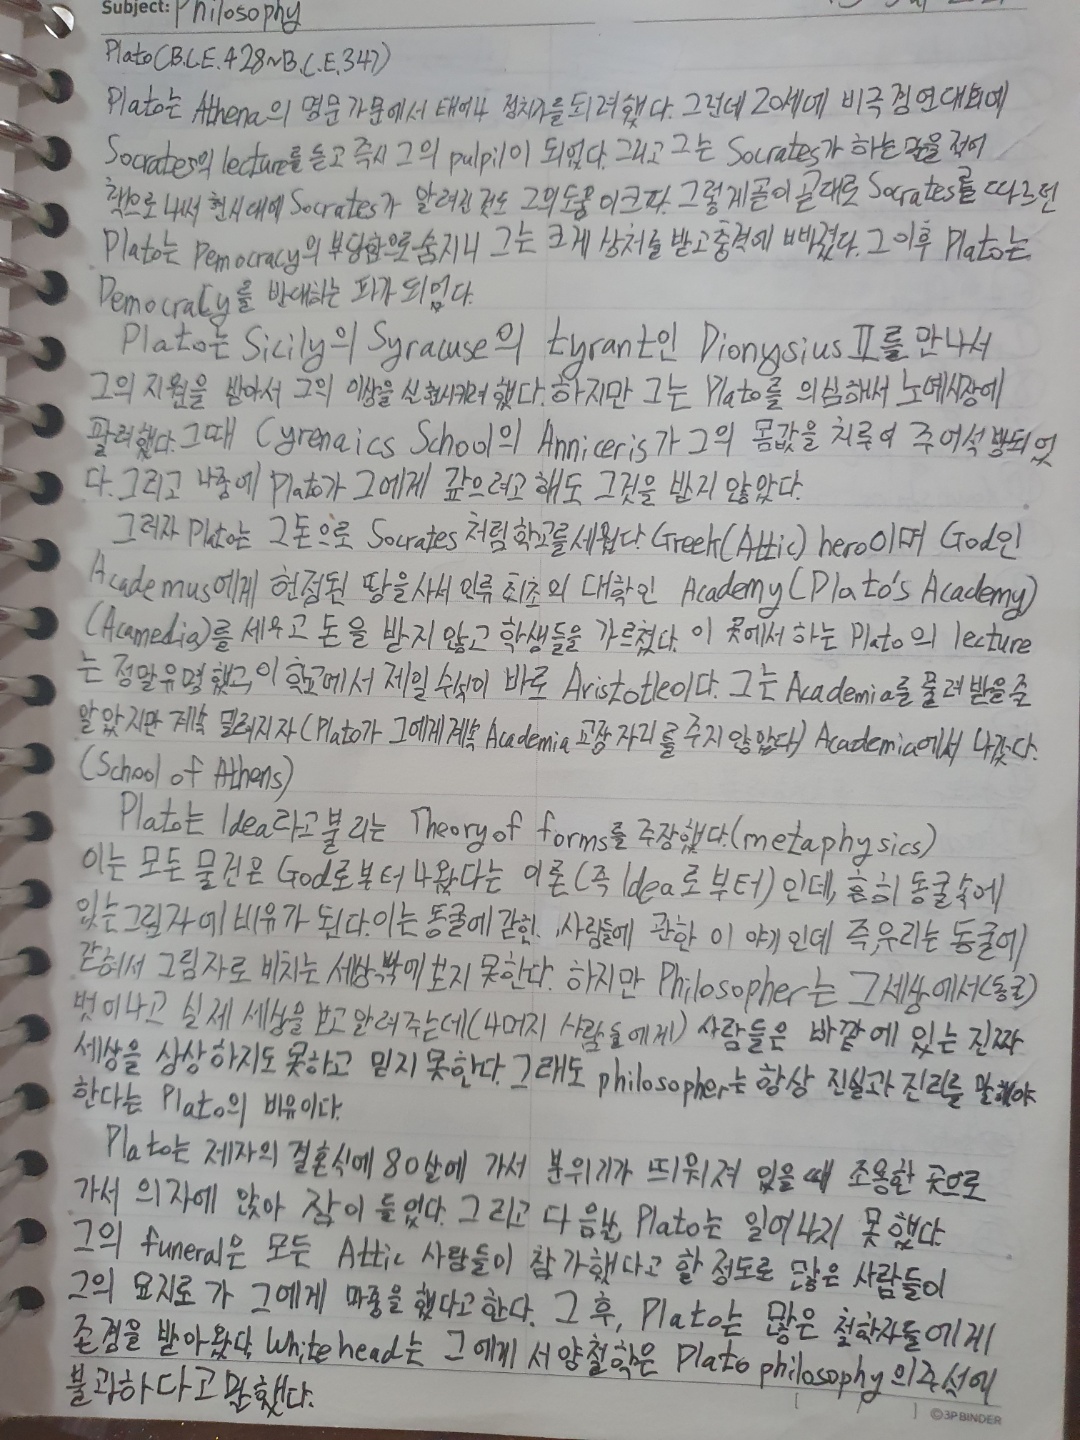 Subject: Philosophy
Plato(B.C.E.428~B.C.E.347)
Plato는 Athena의 명문가문에서 태어나 정치가를 되려했다. 그런데 20세에 비극경연대회에
Socrates의 lecture를 듣고 즉시 그의 pulpil이 되었다. 그리고 그는 Socrates가 하는 말을 적어
책으로 나써 현시대에 Socrates가 알려진 것도 그의 도움이 크다. 그렇게 곧이 곧대로 Socrates를 따르던
Plato는 Democracy의 부당함으로 숨지니 그는 크게 상처를 받고 충격에 빠졌다. 그 이후 Plato는
Democracy를 반대하는 파가 되었다.
Plato는 Sicily의 Syracuse의 tyrant인 Dionysius II를 만나서
그의 지원을 받아서 그의 이상을 실현시키려 했다. 하지만 그는 Plato를 의심해서 노예시장에
팔려했다. 그때 Cyrenaics School의 Anniceris가 그의 몸값을 치루어 주어 석방되었
다. 그리고 나중에 Plato가 그에게 갚으려고 해도 그것을 받지 않았다.
그러자 Plato는 그 돈으로 Socrates처럼 학교를 세웠다. Greek(Attic) hero이며 God인
Academus에게 헌정된 땅을 사서 인류 최초의 대학인 Academy(Plato's Academy)
(Acamedia)를 세우고 돈을 받지 않고 학생들을 가르쳤다. 이 곳에서 하는 Plato의 lecture
는 정말 유명했고, 이 학교에서 제일 수석이 바로 Aristotle이다. 그는 Academia를 물려 받을 줄
알았지만 계속 밀려지자(Plato가 그에게 계속 Academia 교장 자리를 주지 않았다) Academia에서 나갔다.
(School of Athens)
Plato는 Idea라고 불리는 Theory of forms를 주장했다.(metaphysics)
이는 모든 물건은 God로부터 나왔다는 이론(즉 Idea로부터)인데, 흔히 동굴속에
있는 그림자에 비유가 된다. 이는 동굴에 갇힌 사람들에 관한 이야기인데 즉, 우리는 동굴에
갇혀서 그림자로 비치는 세상밖에 보지 못한다. 하지만 Philosopher는 그 세상에서(동굴)
벗어나고 실제 세상을 보고 알려주는데(나머지 사람들에게) 사람들은 바깥에 있는 진짜
세상을 상상하지도 못하고 믿지 못한다. 그래도 philosopher는 항상 진실과 진리를 말해야
한다는 Plato의 비유이다.
Plato는 제자의 결혼식에 80살에 가서 분위기가 띄워져 있을 때 조용한 곳으로
가서 의자에 앉아 잠이 들었다. 그리고 다음날, Plato는 일어나지 못했다.
그의 funeral은 모든 Attic 사람들이 참가했다고 할 정도로 많은 사람들이
그의 묘지로 가 그에게 마중을 했다고 한다. 그 후, Plato는 많은 철학자들에게
존경을 받아왔다. Whitehead는 그에게 서양철학은 Plato philosophy의 주석에
불과하다고 말했다.
©3P BINDER